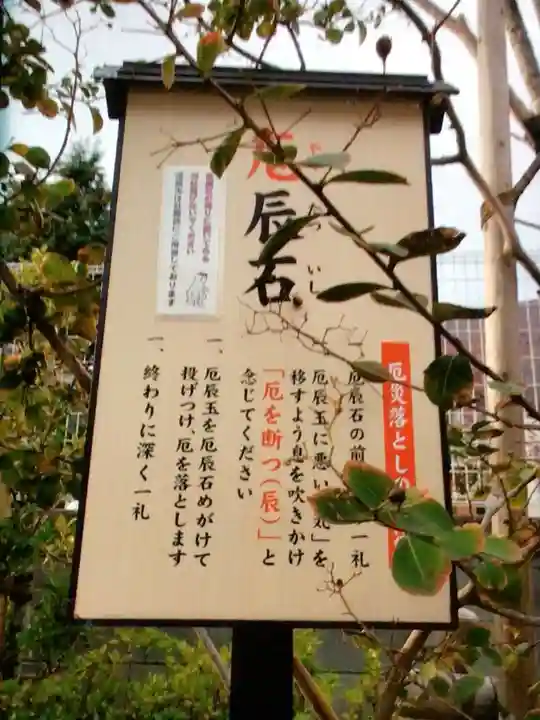 厄辰石
いし
厄災落としの
厄辰石の前 一礼
厄辰玉に悪い 気」を
移すよう息を吹きかけ
「厄を断つ(辰)」と
念じてください
一、厄辰玉を厄辰石めがけて
投げつけ、厄を落とします
一、終わりに深く一礼